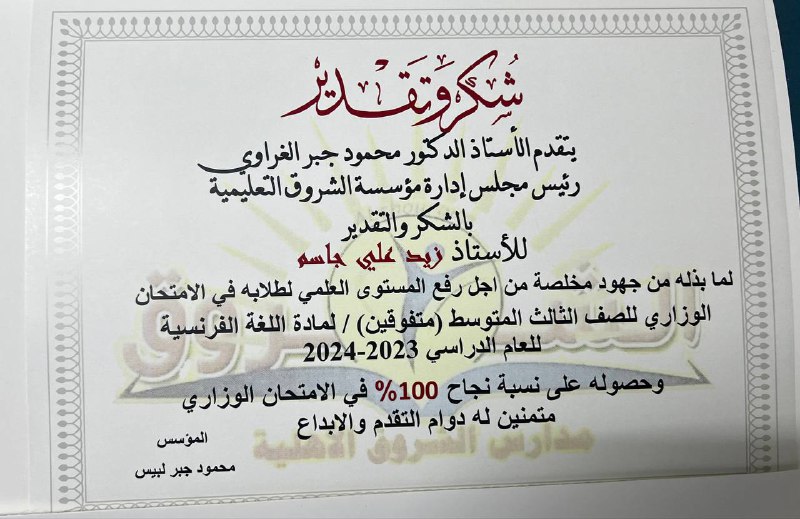 شكر وتقدير
يتقدم الأستاذ الدكتور محمود جبر الغراوي
رئيس مجلس إدارة مؤسسة الشروق التعليمية
بالشكر والتقدير
للأستاذ زيد علي جاسم
لما بذله من جهود مخلصة من اجل رفع المستوى العلمي لطلابه في الامتحان
الوزاري للصف الثالث المتوسط (متفوقين) / لمادة اللغة الفرنسية
للعام الدراسي 2023-2024
وحصوله على نسبة نجاح 100% في الامتحان الوزاري
متمنين له دوام التقدم والابداع
المؤسس
محمود جبر لبيس
الشروق
مدارس الشروق الاهلية